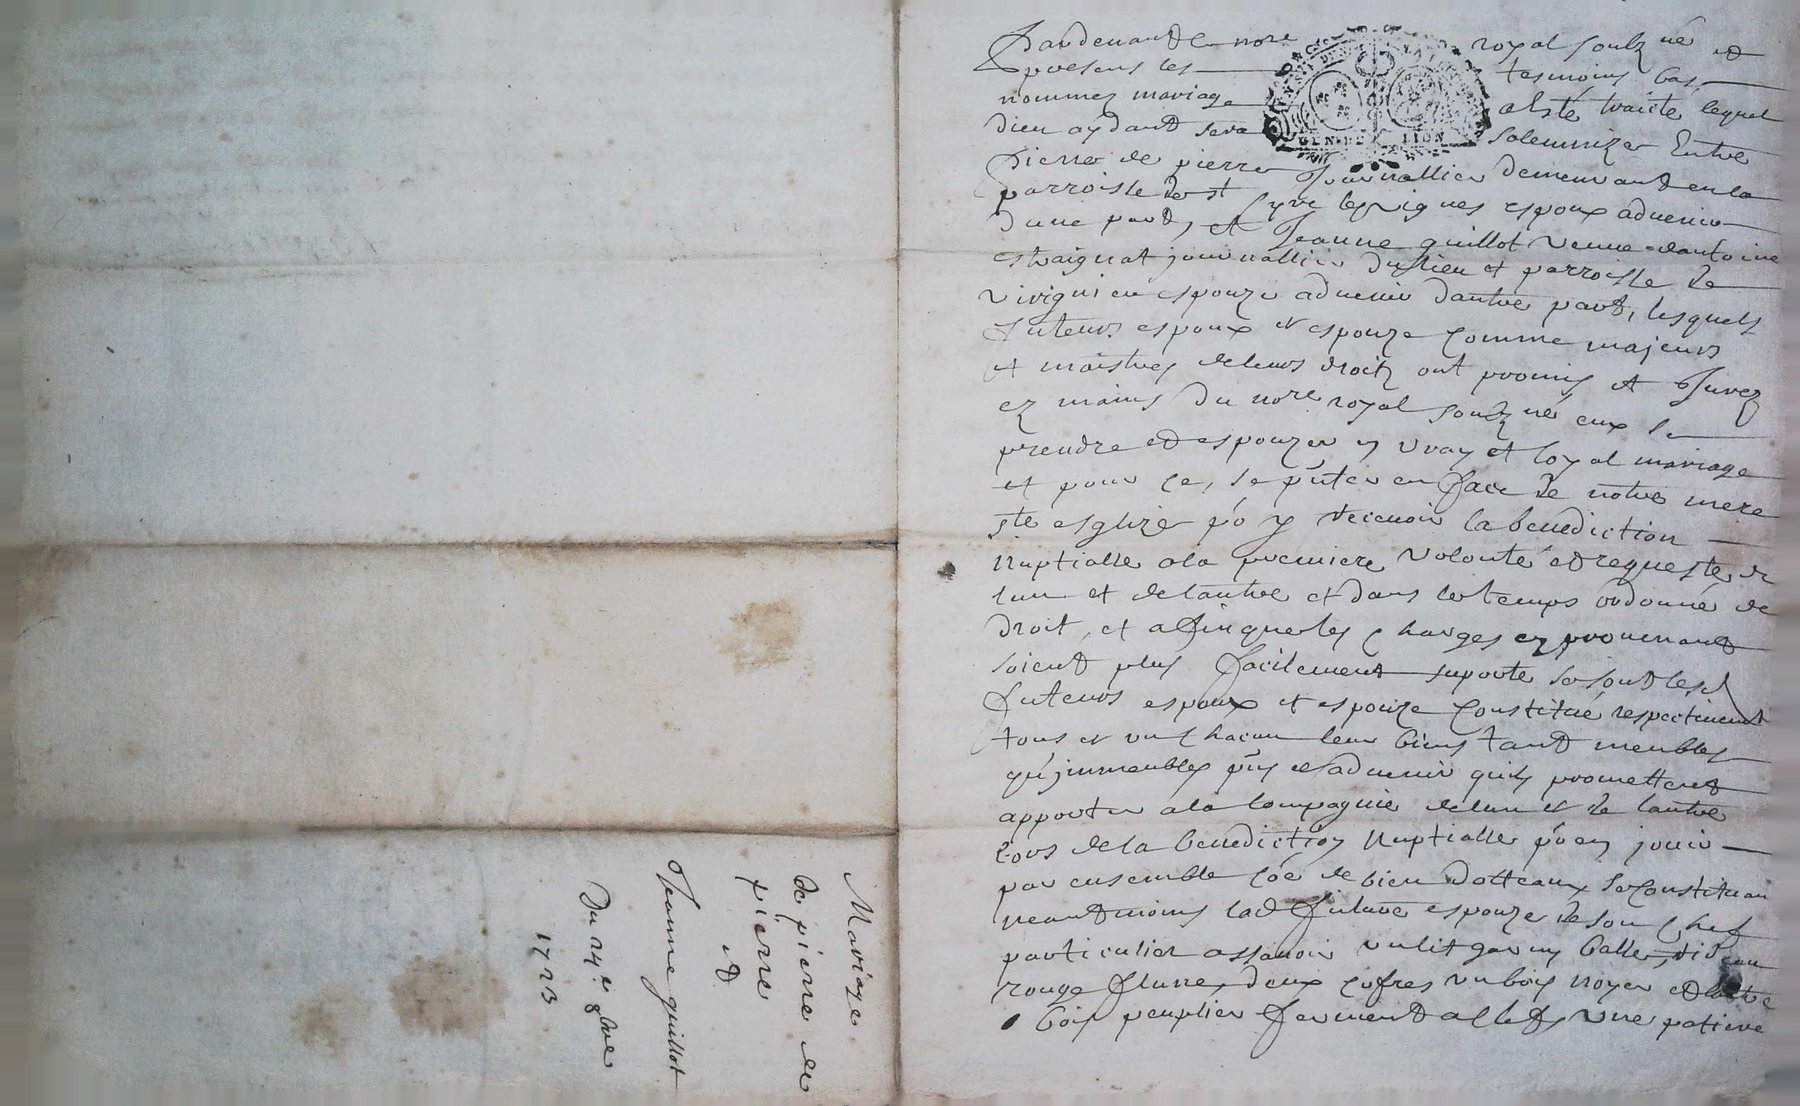 Pardevant le nore royal soubz né et
presens les tesmoins bas
nommez mariage a esté traicté lequel
dieu aydant sera solemnizé Entre
Pierre de pierre Journallier demeurant en la
parroisse de st Cyre les vignes espoux advenir
dune part, et Jeanne guillot veuve dantoine
estraignat journallier du lieu et parroisse de
virigni en espouze advenir dautre part, lesquels
futeurs espoux et espouze comme majeurs
et maistres de leurs droitz ont promis et Jurez
ez mains du nore royal soubz né eux se
prendre et espouzer en vray et loyal mariage
et pour ce, se pnter en face de notre mere
ste esglize po y recevoir la benediction
Nuptialle a la premiere volonté et requeste de
lun et de lautre et dans les temps ordonné de
Droit, et affin que les charges en provenant
soient plus facilement suporté se sont lesd
futeurs espoux et espouze Constitué respectivement
tous et un chacun leur biens tant meubles
qu'jmmeubles pns et advenir quils promettent
apporter a la Compagnie de lun et de lautre
Lors de la benediction Nuptialle po en jouir
par ensemble coe de bien dotteaux se Constituan
neantmoins lad future espouze de son Chef
particulier assavoir un lit garny balle, rideau
rouge deux cofres un bois noyer et lautre
bois peuplier fermant a clefs une patire
GEN DE LION
Mariage
de pierre de
pierre
et
Jeanne guillot
Du 24e 8bre
1723